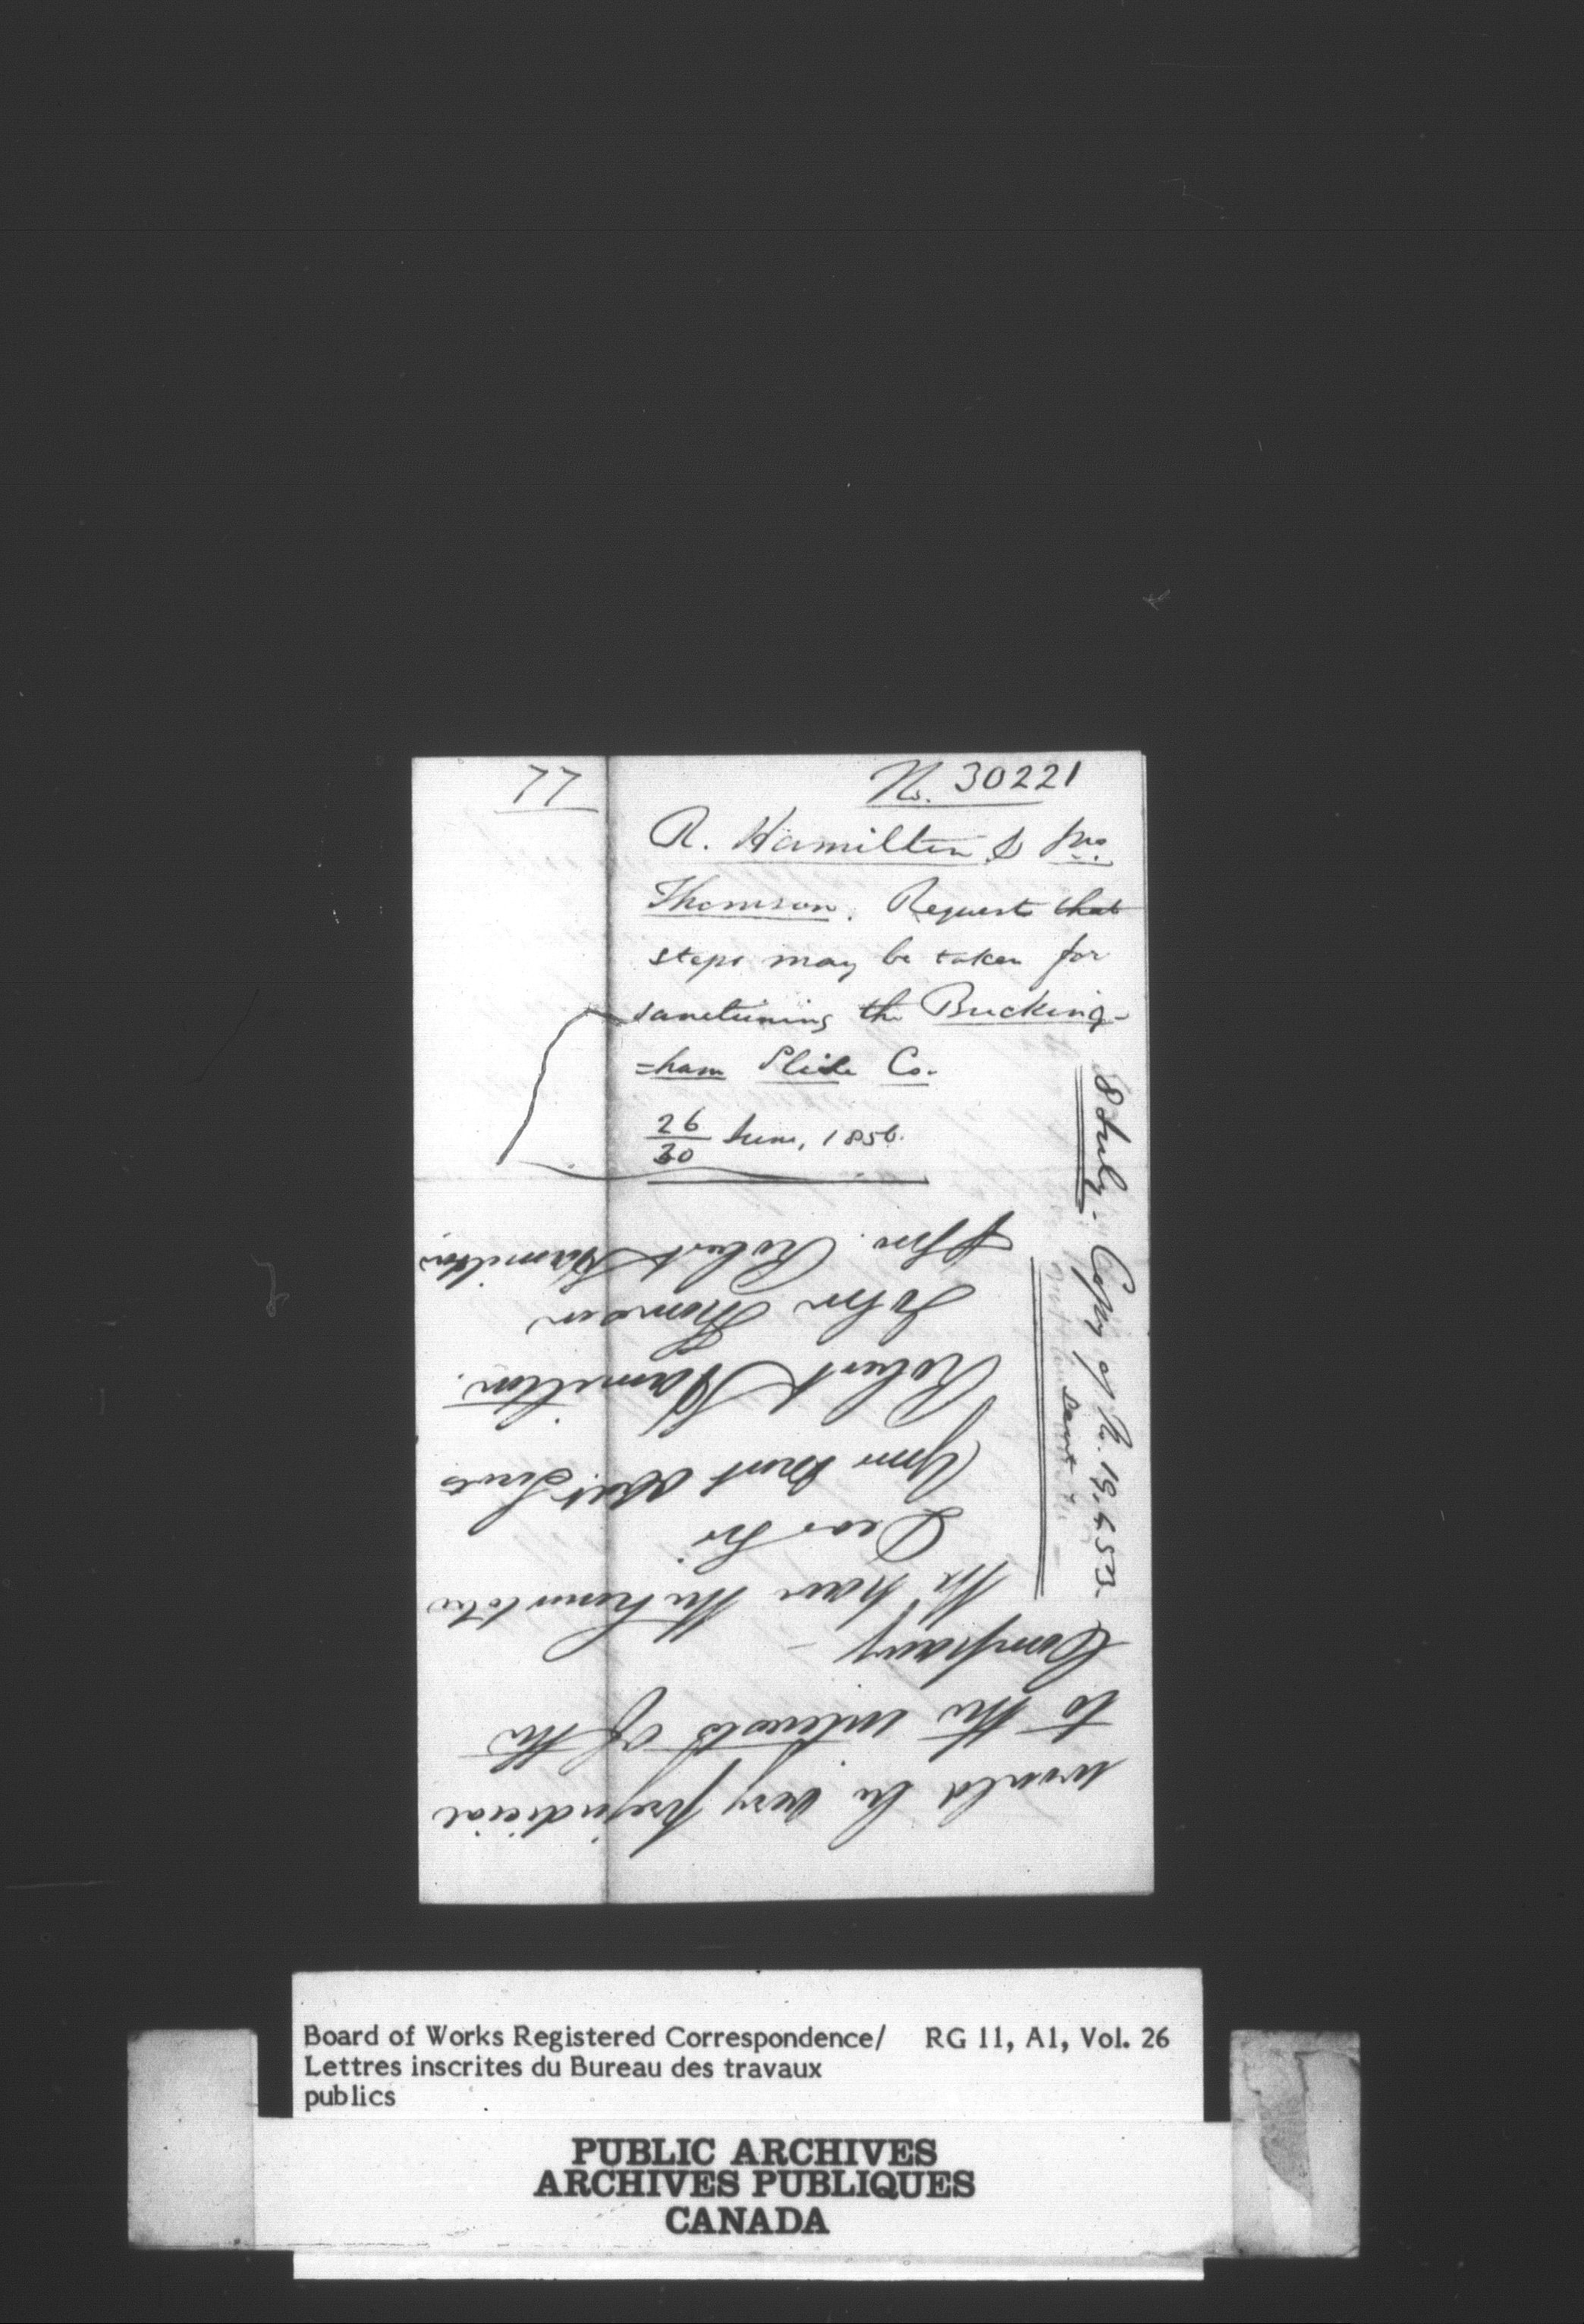 77
No. 30221
R. Hamilton & Jno.
Thomson. Request that
steps may be taken for
sanctioning the Bucking-
=ham Slide Co.
26/30 June, 1856.
8 July - Copy of No. 19,453.
sent
would be very prejudicial
to the interests of the
Company -
We have the honor to be
Dear Sir
Your most Obt Servts
Robert Hamilton.
John Thomson
Robert Hamilton
Board of Works Registered Correspondence/ RG 11, A1, Vol. 26
Lettres inscrites du Bureau des travaux
publics
PUBLIC ARCHIVES
ARCHIVES PUBLIQUES
CANADA